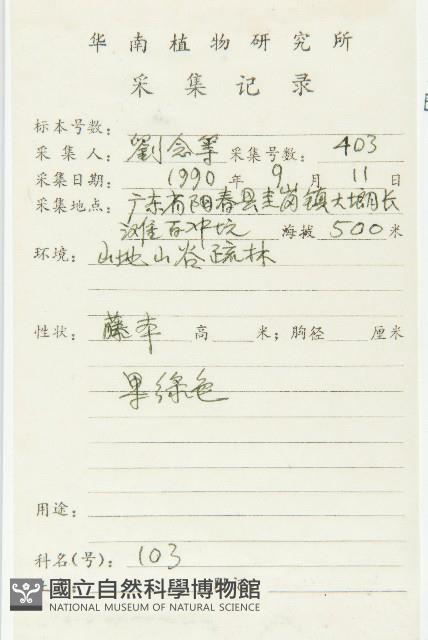 华南植物研究所
采集记录
标本号数：
采集人：劉念等 采集号数：403
采集日期：1990年9月11日
采集地点：广东省阳春县圭岗镇大塱长
滩百冲坑 海拔500米
环境：山地山谷疏林
性状：藤本 高 米；胸径 厘米
果绿色
用途：
科名(号)：103
國立自然科學博物館
NATIONAL MUSEUM OF NATURAL SCIENCE